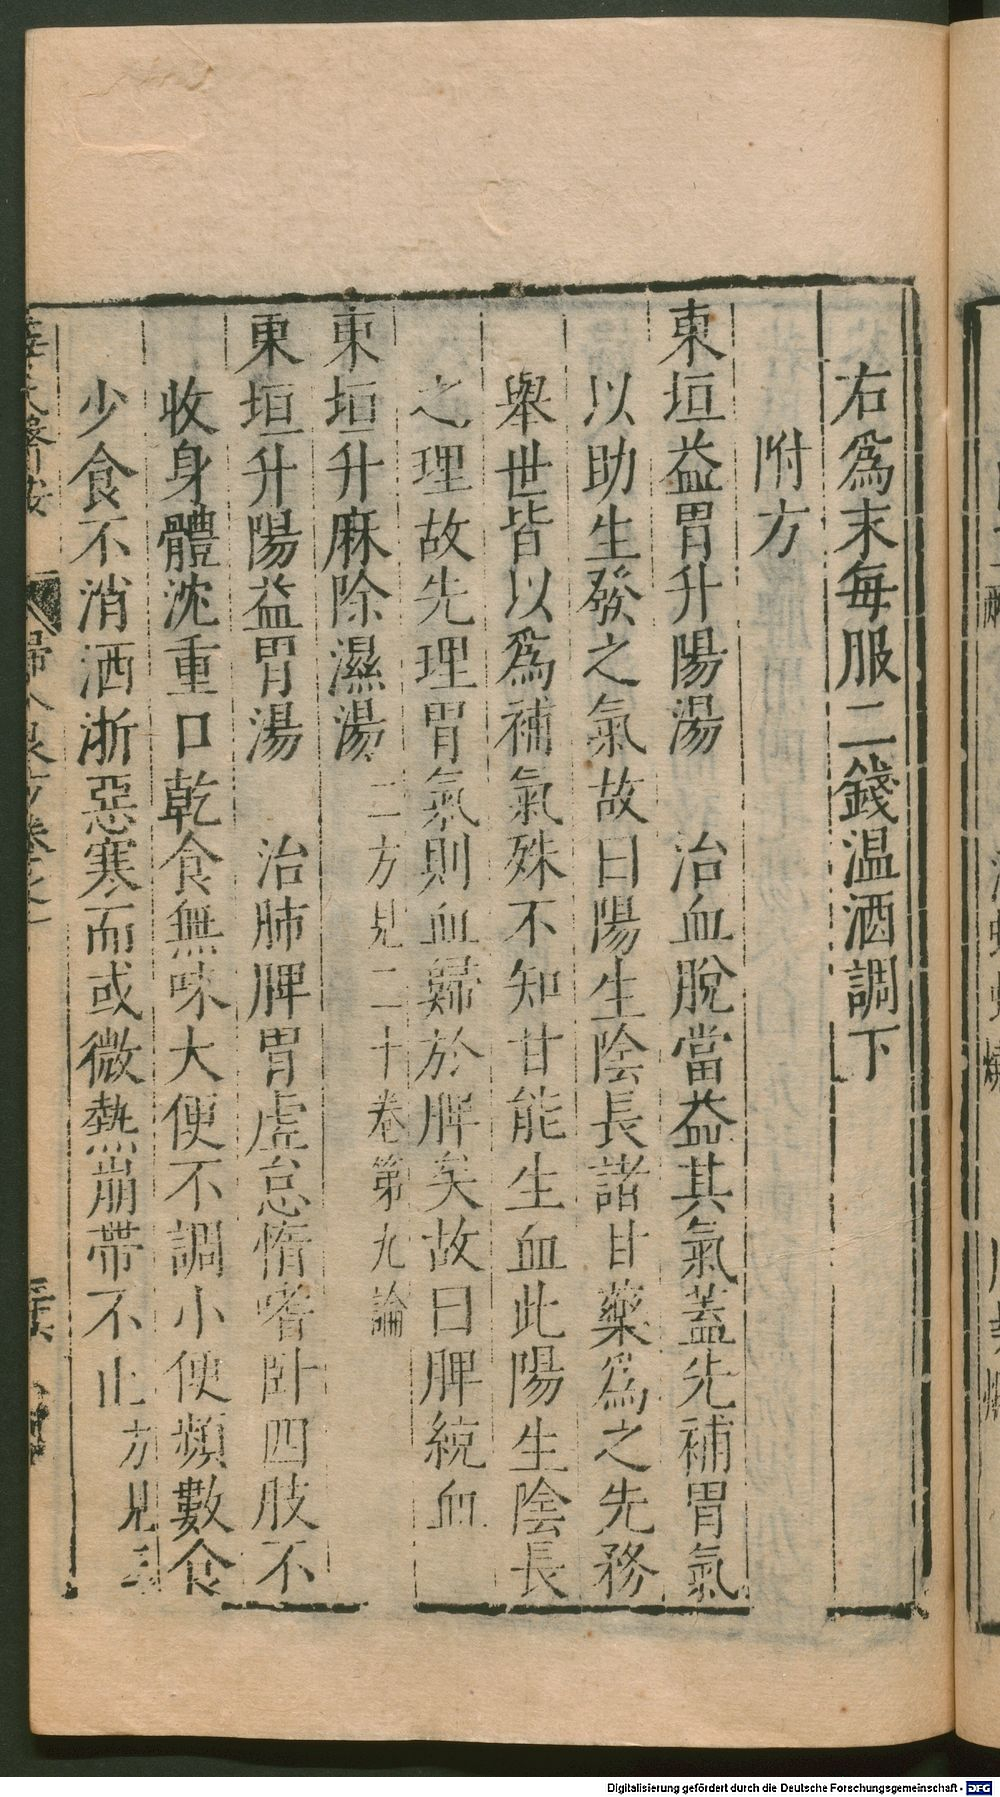 右為末每服二錢温酒調下
附方
東垣益胃升陽湯　治血脫當益其氣蓋先補胃氣
以助生發之氣故曰陽生陰長諸甘藥為之先務
舉世皆以為補氣殊不知甘能生血此陽生陰長
之理故先理胃氣則血歸於脾矣故曰脾統血
東垣升麻除濕湯 二方見二十卷第九論
東垣升陽益胃湯　治肺脾胃虛怠惰嗜卧四肢不
收身體沈重口乾食無味大便不調小便頻數食
少食不消洒淅惡寒而或微熱崩帶不止 方見
婦人良方卷之
Digitalisierung gefördert durch die Deutsche Forschungsgemeinschaft - DFG